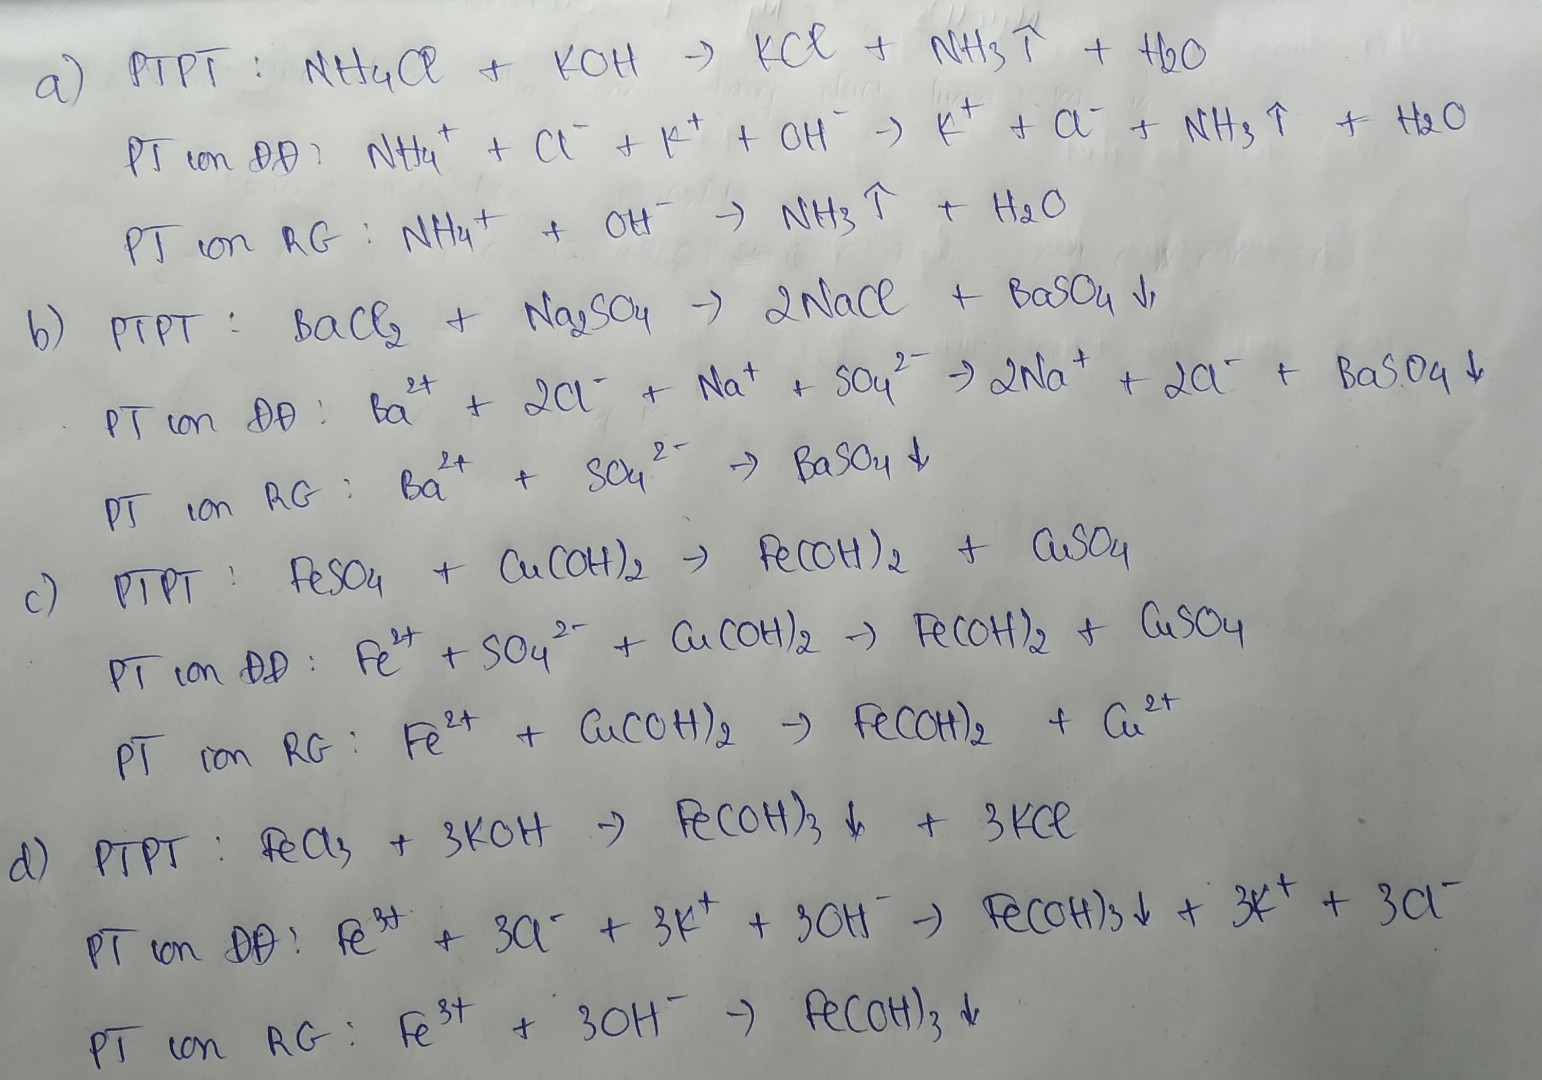 a) PTPT : NH₄Cl + KOH → KCl + NH₃↑ + H₂O
PT ion ĐĐ : NH₄⁺ + Cl⁻ + K⁺ + OH⁻ → K⁺ + Cl⁻ + NH₃↑ + H₂O
PT ion RG : NH₄⁺ + OH⁻ → NH₃↑ + H₂O
b) PTPT : BaCl₂ + Na₂SO₄ → 2NaCl + BaSO₄↓
PT ion ĐĐ : Ba²⁺ + 2Cl⁻ + Na⁺ + SO₄²⁻ → 2Na⁺ + 2Cl⁻ + BaSO₄↓
PT ion RG : Ba²⁺ + SO₄²⁻ → BaSO₄↓
c) PTPT : FeSO₄ + Cu(OH)₂ → Fe(OH)₂ + CuSO₄
PT ion ĐĐ : Fe²⁺ + SO₄²⁻ + Cu(OH)₂ → Fe(OH)₂ + CuSO₄
PT ion RG : Fe²⁺ + Cu(OH)₂ → Fe(OH)₂ + Cu²⁺
d) PTPT : FeCl₃ + 3KOH → Fe(OH)₃↓ + 3KCl
PT ion ĐĐ : Fe³⁺ + 3Cl⁻ + 3K⁺ + 3OH⁻ → Fe(OH)₃↓ + 3K⁺ + 3Cl⁻
PT ion RG : Fe³⁺ + 3OH⁻ → Fe(OH)₃↓